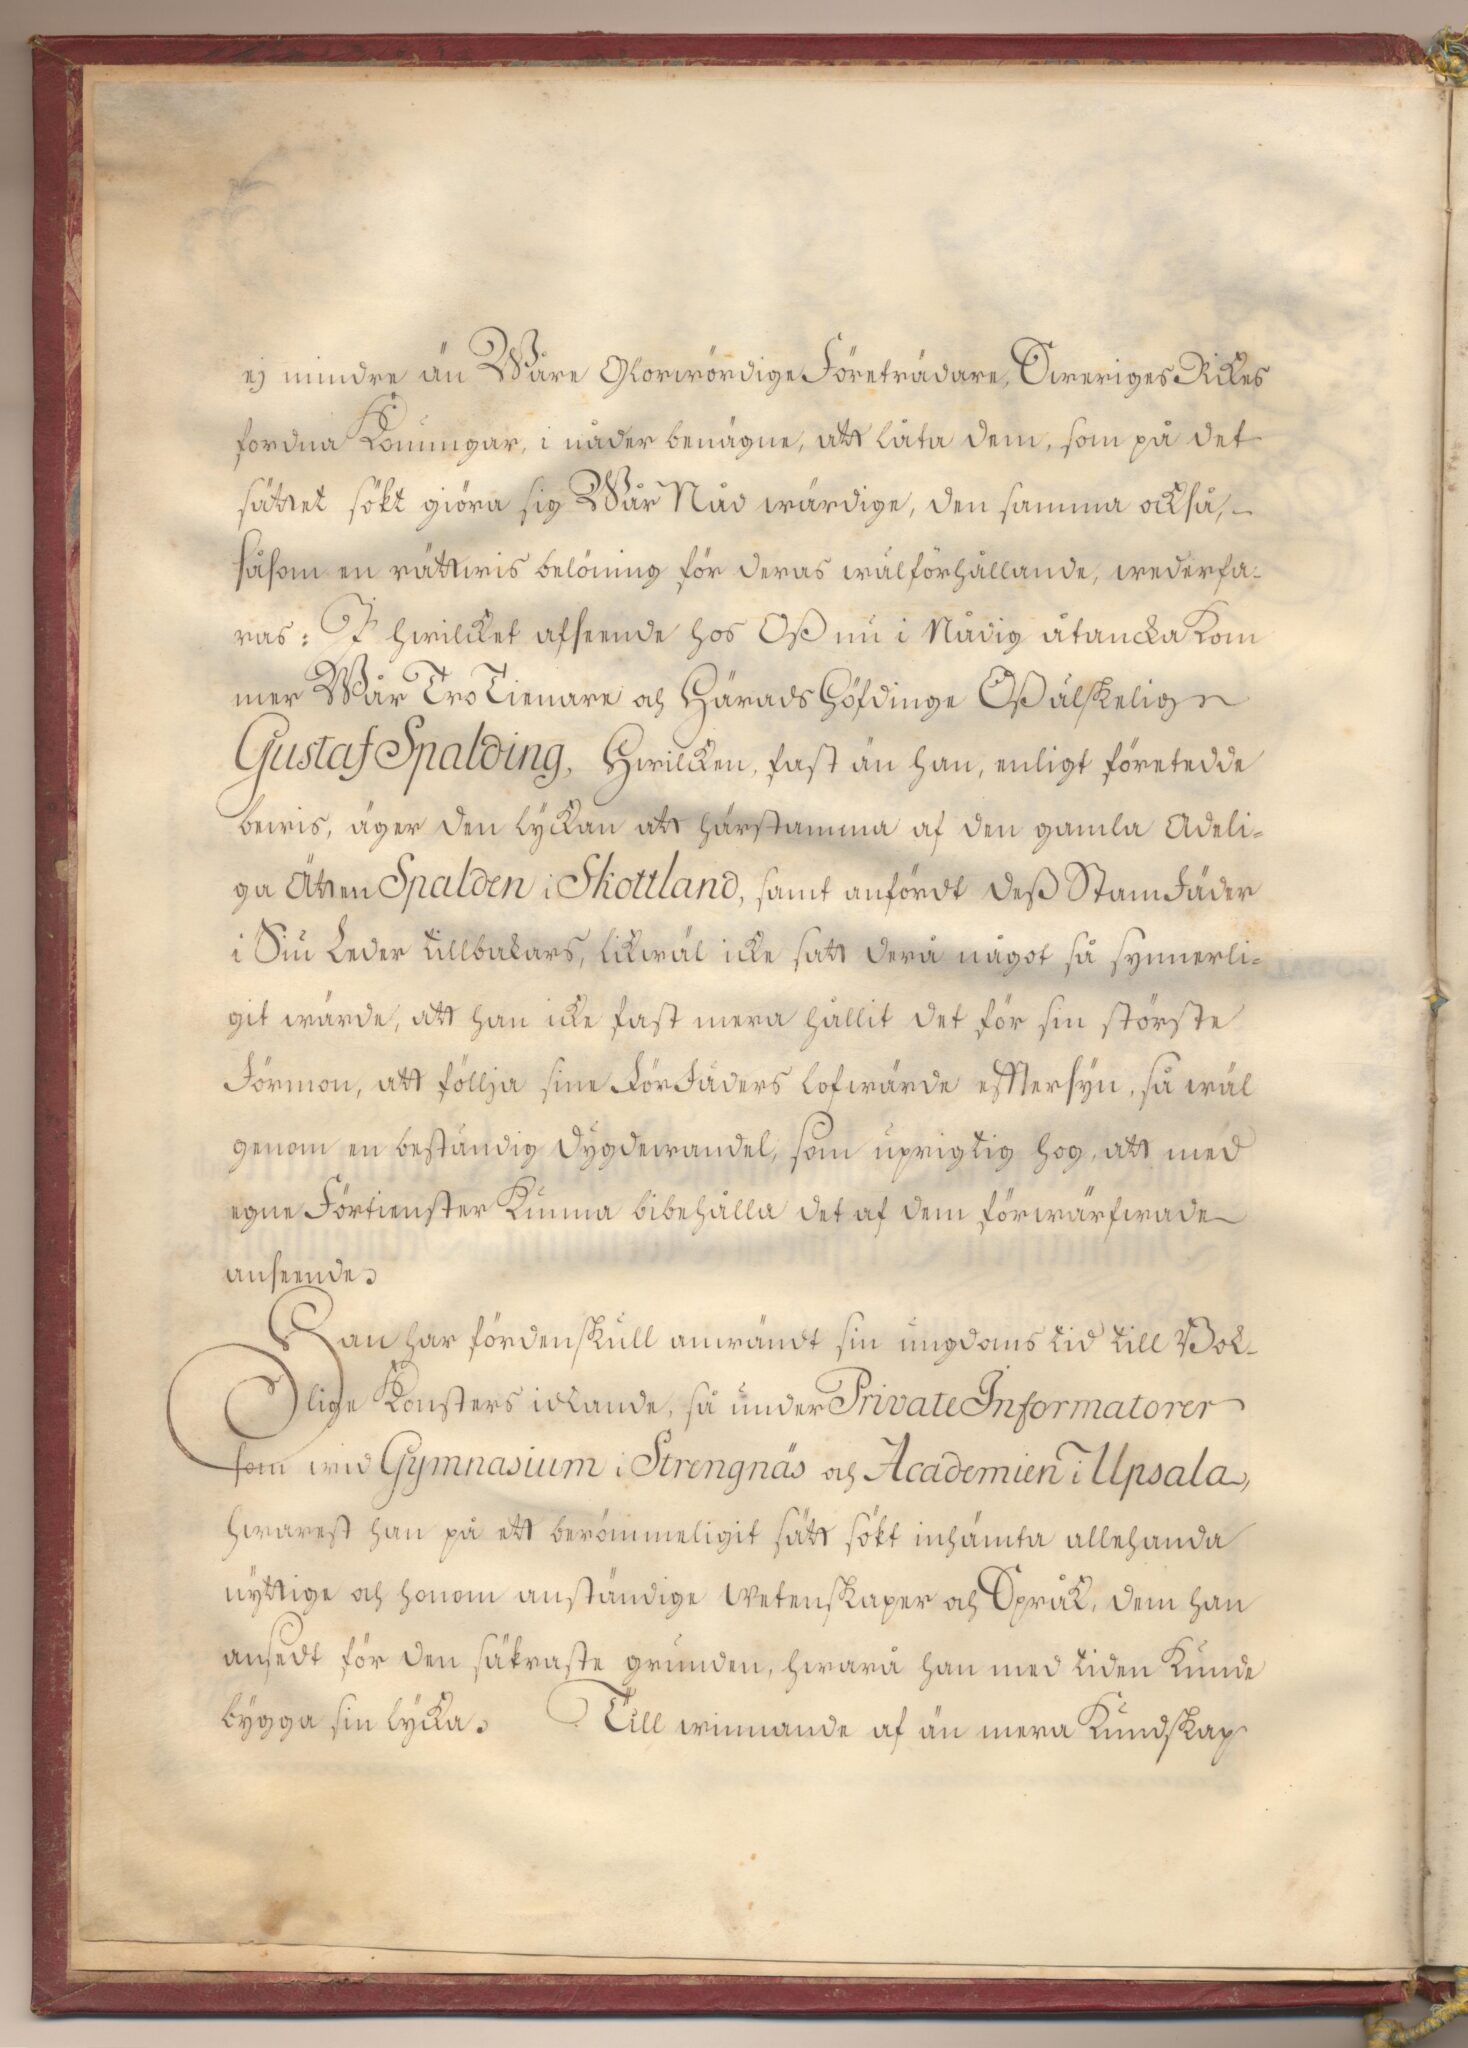 ej mindre än Wåre Glorwördige Företrädare, Sweriges Rikes
fordna Konungar, i nåder benägne, att låta dem, som på det
sättet sökt giöra sig Wår Nåd wärdige, den samma också,
såsom en rättwis belöning för deras wälförhållande, wederfa-
ras: I hwilcket afseende hos Oß nu i Nådig åtancka kom
mer Wår Tro Tienare och Härads Höfdinge Oß älskelig
Gustaf Spalding, Hwilcken, fast än han, enligt företedde
bewis, äger den lyckan att härstamma af den gamla Adeli-
ga Ätten Spalden i Skottland, samt anfördt deß StamFäder
i Siu Leder tillbakars, likwäl icke satt derå något så synnerli-
git wärde, att han icke fast mera hållit det för sin störste
Förmon, att föllja sine FörFäders lofwärde efftersyn, så wäl
genom en beständig dygdewandel, som uprigtig hog, att med
egne Förtienster kunna bibehålla det af dem förwärfwade
anseende.
Han har fördenskull anwändt sin ungdoms tid till Bok-
lige Konsters idkande, så under Private Informatorer
som wid Gymnasium i Strengnäs och Academien i Upsala,
hwarest han på ett berömmeligit sätt sökt inhämta allehanda
nyttige och honom anständige Wetenskaper och Språk, dem han
ansedt för den säkraste grunden, hwarå han med tiden kunde
bygga sin lycka. Till winnande af än mera Kundskap